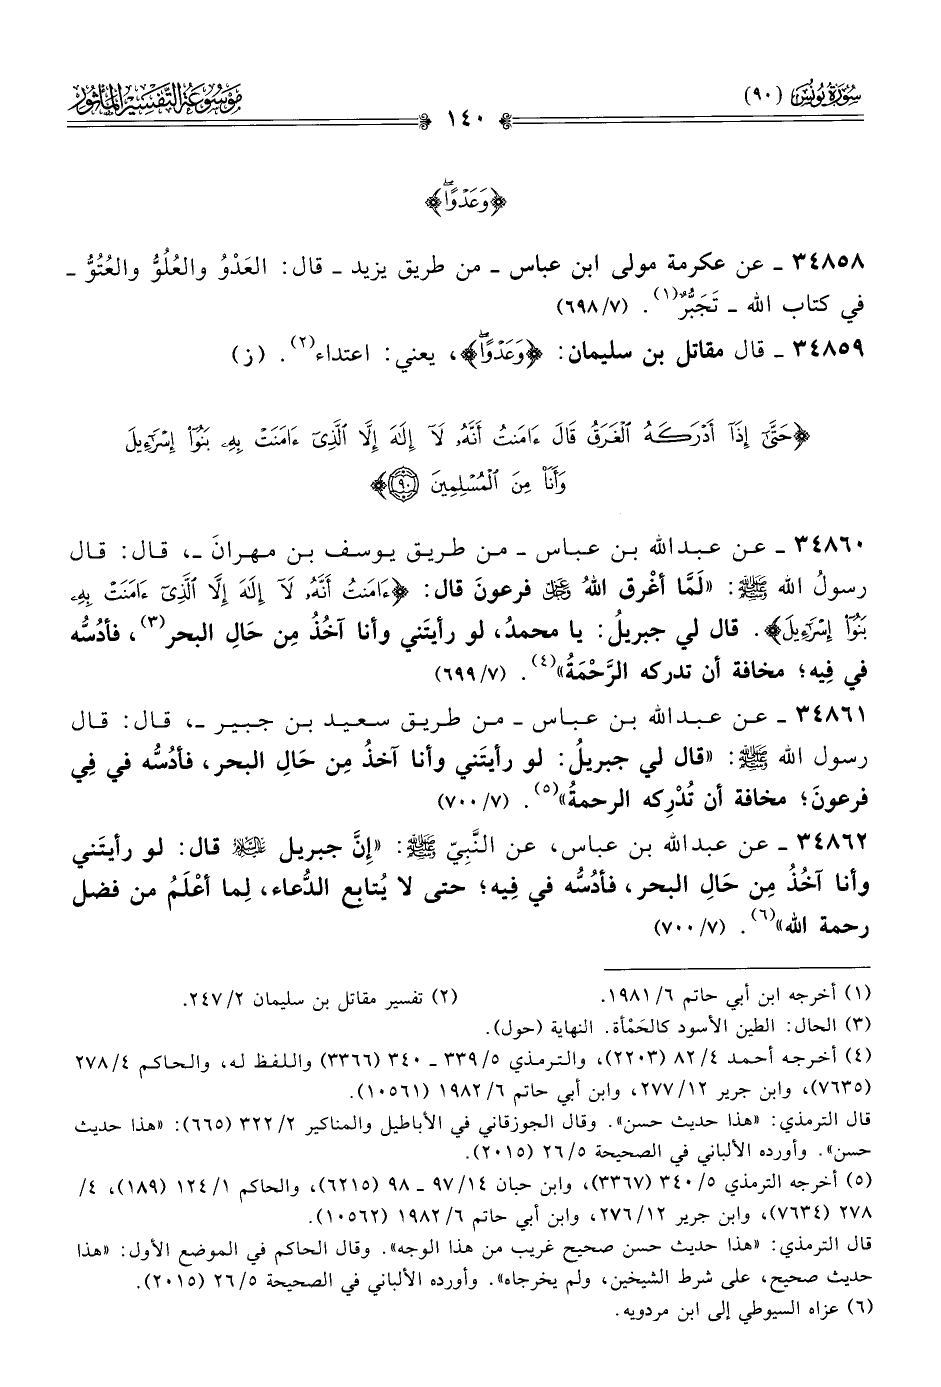 سُورَةُ يُونُسَ (٩٠)
مَوْسُوعَة التَّفْسِير المَأْثُور
١٤٠
﴿وَعَدْوًاۖ﴾
٣٤٨٥٨ ـ عن عكرمة مولى ابن عباس ـ من طريق يزيد ـ قال: العَدْوُ والعُلُوُّ والعُتُوُّ ـ
في كتاب الله ـ تَجَبُّرٌ(١). (٧/ ٦٩٨)
٣٤٨٥٩ ـ قال مقاتل بن سليمان: ﴿وَعَدْوًاۖ﴾، يعني: اعتداء(٢). (ز)
﴿حَتَّىٰٓ إِذَآ أَدْرَكَهُ ٱلْغَرَقُ قَالَ ءَامَنتُ أَنَّهُۥ لَآ إِلَٰهَ إِلَّا ٱلَّذِىٓ ءَامَنَتْ بِهِۦ بَنُوٓا۟ إِسْرَٰٓءِيلَ
وَأَنَا۠ مِنَ ٱلْمُسْلِمِينَ ٩٠﴾
٣٤٨٦٠ ـ عن عبدالله بن عباس ـ من طريق يوسف بن مهرانَ ـ، قال: قال
رسولُ الله ﷺ: «لَمَّا أغْرق اللهُ ﷻ فرعونَ قال: ﴿ءَامَنتُ أَنَّهُۥ لَآ إِلَٰهَ إِلَّا ٱلَّذِىٓ ءَامَنَتْ بِهِۦ
بَنُوٓا۟ إِسْرَٰٓءِيلَ﴾. قال لي جبريلُ: يا محمدُ، لو رأيتَني وأنا آخُذُ مِن حَالِ البحر(٣)، فأدُسُّه
في فِيه؛ مخافة أن تدركه الرَّحْمَةُ»(٤). (٧/ ٦٩٩)
٣٤٨٦١ ـ عن عبدالله بن عباس ـ من طريق سعيد بن جبير ـ، قال: قال
رسول الله ﷺ: «قال لي جبريلُ: لو رأيتَني وأنا آخذُ مِن حَالِ البحر، فأدُسُّه في فِي
فرعونَ؛ مخافة أن تُدْرِكه الرحمةُ»(٥). (٧/ ٧٠٠)
٣٤٨٦٢ ـ عن عبدالله بن عباس، عن النَّبِيّ ﷺ: «إنَّ جبريل عليه السلام قال: لو رأيتَني
وأنا آخُذُ مِن حَالِ البحر، فأدُسُّه في فِيه؛ حتى لا يُتابع الدُّعاء، لِما أعْلَمُ من فضل
رحمة الله»(٦). (٧/ ٧٠٠)
(١) أخرجه ابن أبي حاتم ٦/ ١٩٨١. (٢) تفسير مقاتل بن سليمان ٢/ ٢٤٧.
(٣) الحال: الطين الأسود كالحَمْأة. النهاية (حول).
(٤) أخرجه أحمد ٤/ ٨٢ (٢٢٠٣)، والترمذي ٥/ ٣٣٩ ـ ٣٤٠ (٣٣٦٦) واللفظ له، والحاكم ٤/ ٢٧٨
(٧٦٣٥)، وابن جرير ١٢/ ٢٧٧، وابن أبي حاتم ٦/ ١٩٨٢ (١٠٥٦١).
قال الترمذي: «هذا حديث حسن». وقال الجوزقاني في الأباطيل والمناكير ٢/ ٣٢٢ (٦٦٥): «هذا حديث
حسن». وأورده الألباني في الصحيحة ٥/ ٢٦ (٢٠١٥).
(٥) أخرجه الترمذي ٥/ ٣٤٠ (٣٣٦٧)، وابن حبان ١٤/ ٩٧ ـ ٩٨ (٦٢١٥)، والحاكم ١/ ١٢٤ (١٨٩)، ٤/
٢٧٨ (٧٦٣٤)، وابن جرير ١٢/ ٢٧٦، وابن أبي حاتم ٦/ ١٩٨٢ (١٠٥٦٢).
قال الترمذي: «هذا حديث حسن صحيح غريب من هذا الوجه». وقال الحاكم في الموضع الأول: «هذا
حديث صحيح، على شرط الشيخين، ولم يخرجاه». وأورده الألباني في الصحيحة ٥/ ٢٦ (٢٠١٥).
(٦) عزاه السيوطي إلى ابن مردويه.